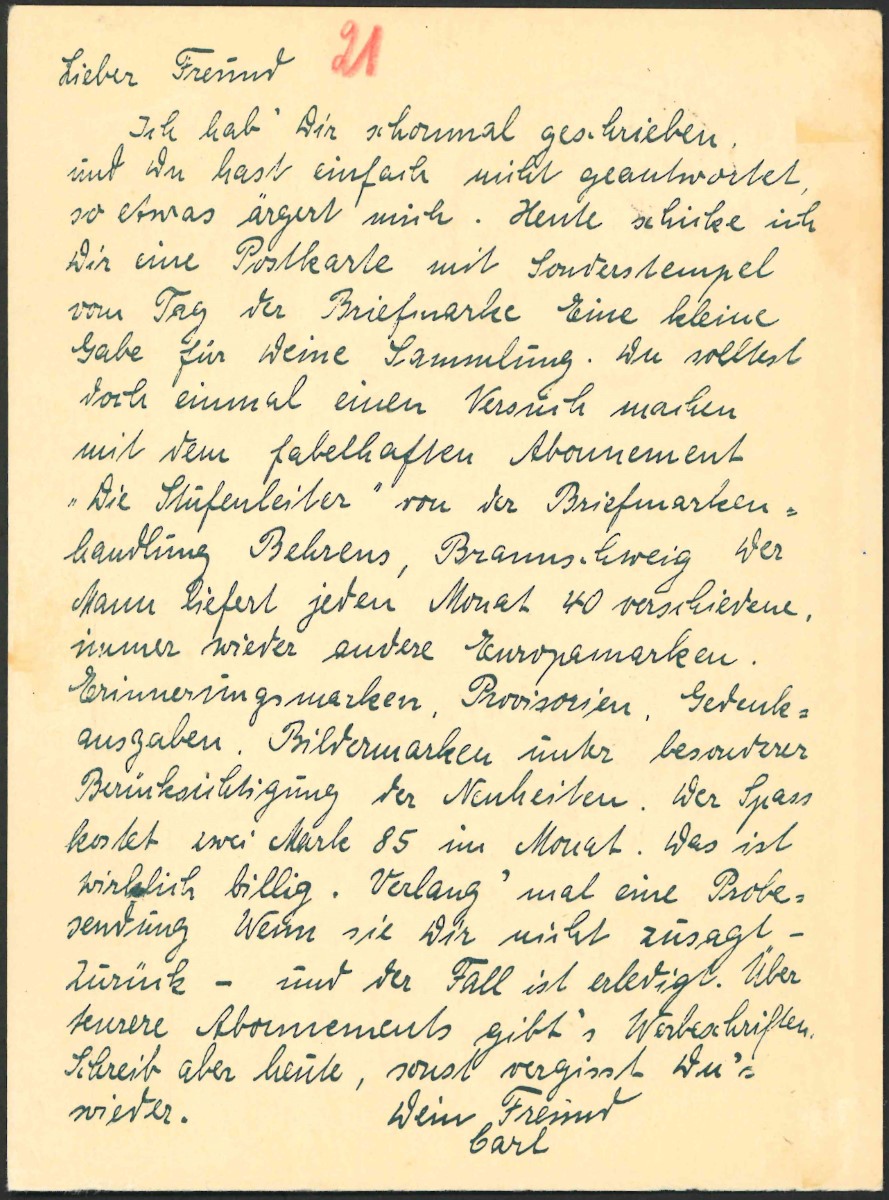 Lieber Freund 21
Ich hab' Dir schonmal geschrieben,
und Du hast einfach nicht geantwortet,
so etwas ärgert mich. Heute schicke ich
Dir eine Postkarte mit Sonderstempel
vom Tag der Briefmarke Eine kleine
Gabe für Deine Sammlung. Du solltest
doch einmal einen Versuch machen
mit dem fabelhaften Abonnement
"Die Stufenleiter" von der Briefmarken=
handlung Behrens, Braunschweig Der
Mann liefert jeden Monat 40 verschiedene,
immer wieder andere Europamarken.
Erinnerungsmarken, Provisorien, Gedenk=
ausgaben, Bildermarken unter besonderer
Berücksichtigung der Neuheiten. Der Spass
kostet zwei Mark 85 im Monat. Das ist
wirklich billig. Verlang' mal eine Probe=
sendung Wenn sie Dir nicht zusagt -
zurück - und der Fall ist erledigt. Über
teurere Abonnements gibt's Werbeschriften.
Schreib aber heute, sonst vergisst Du's
wieder. Dein Freund
Carl